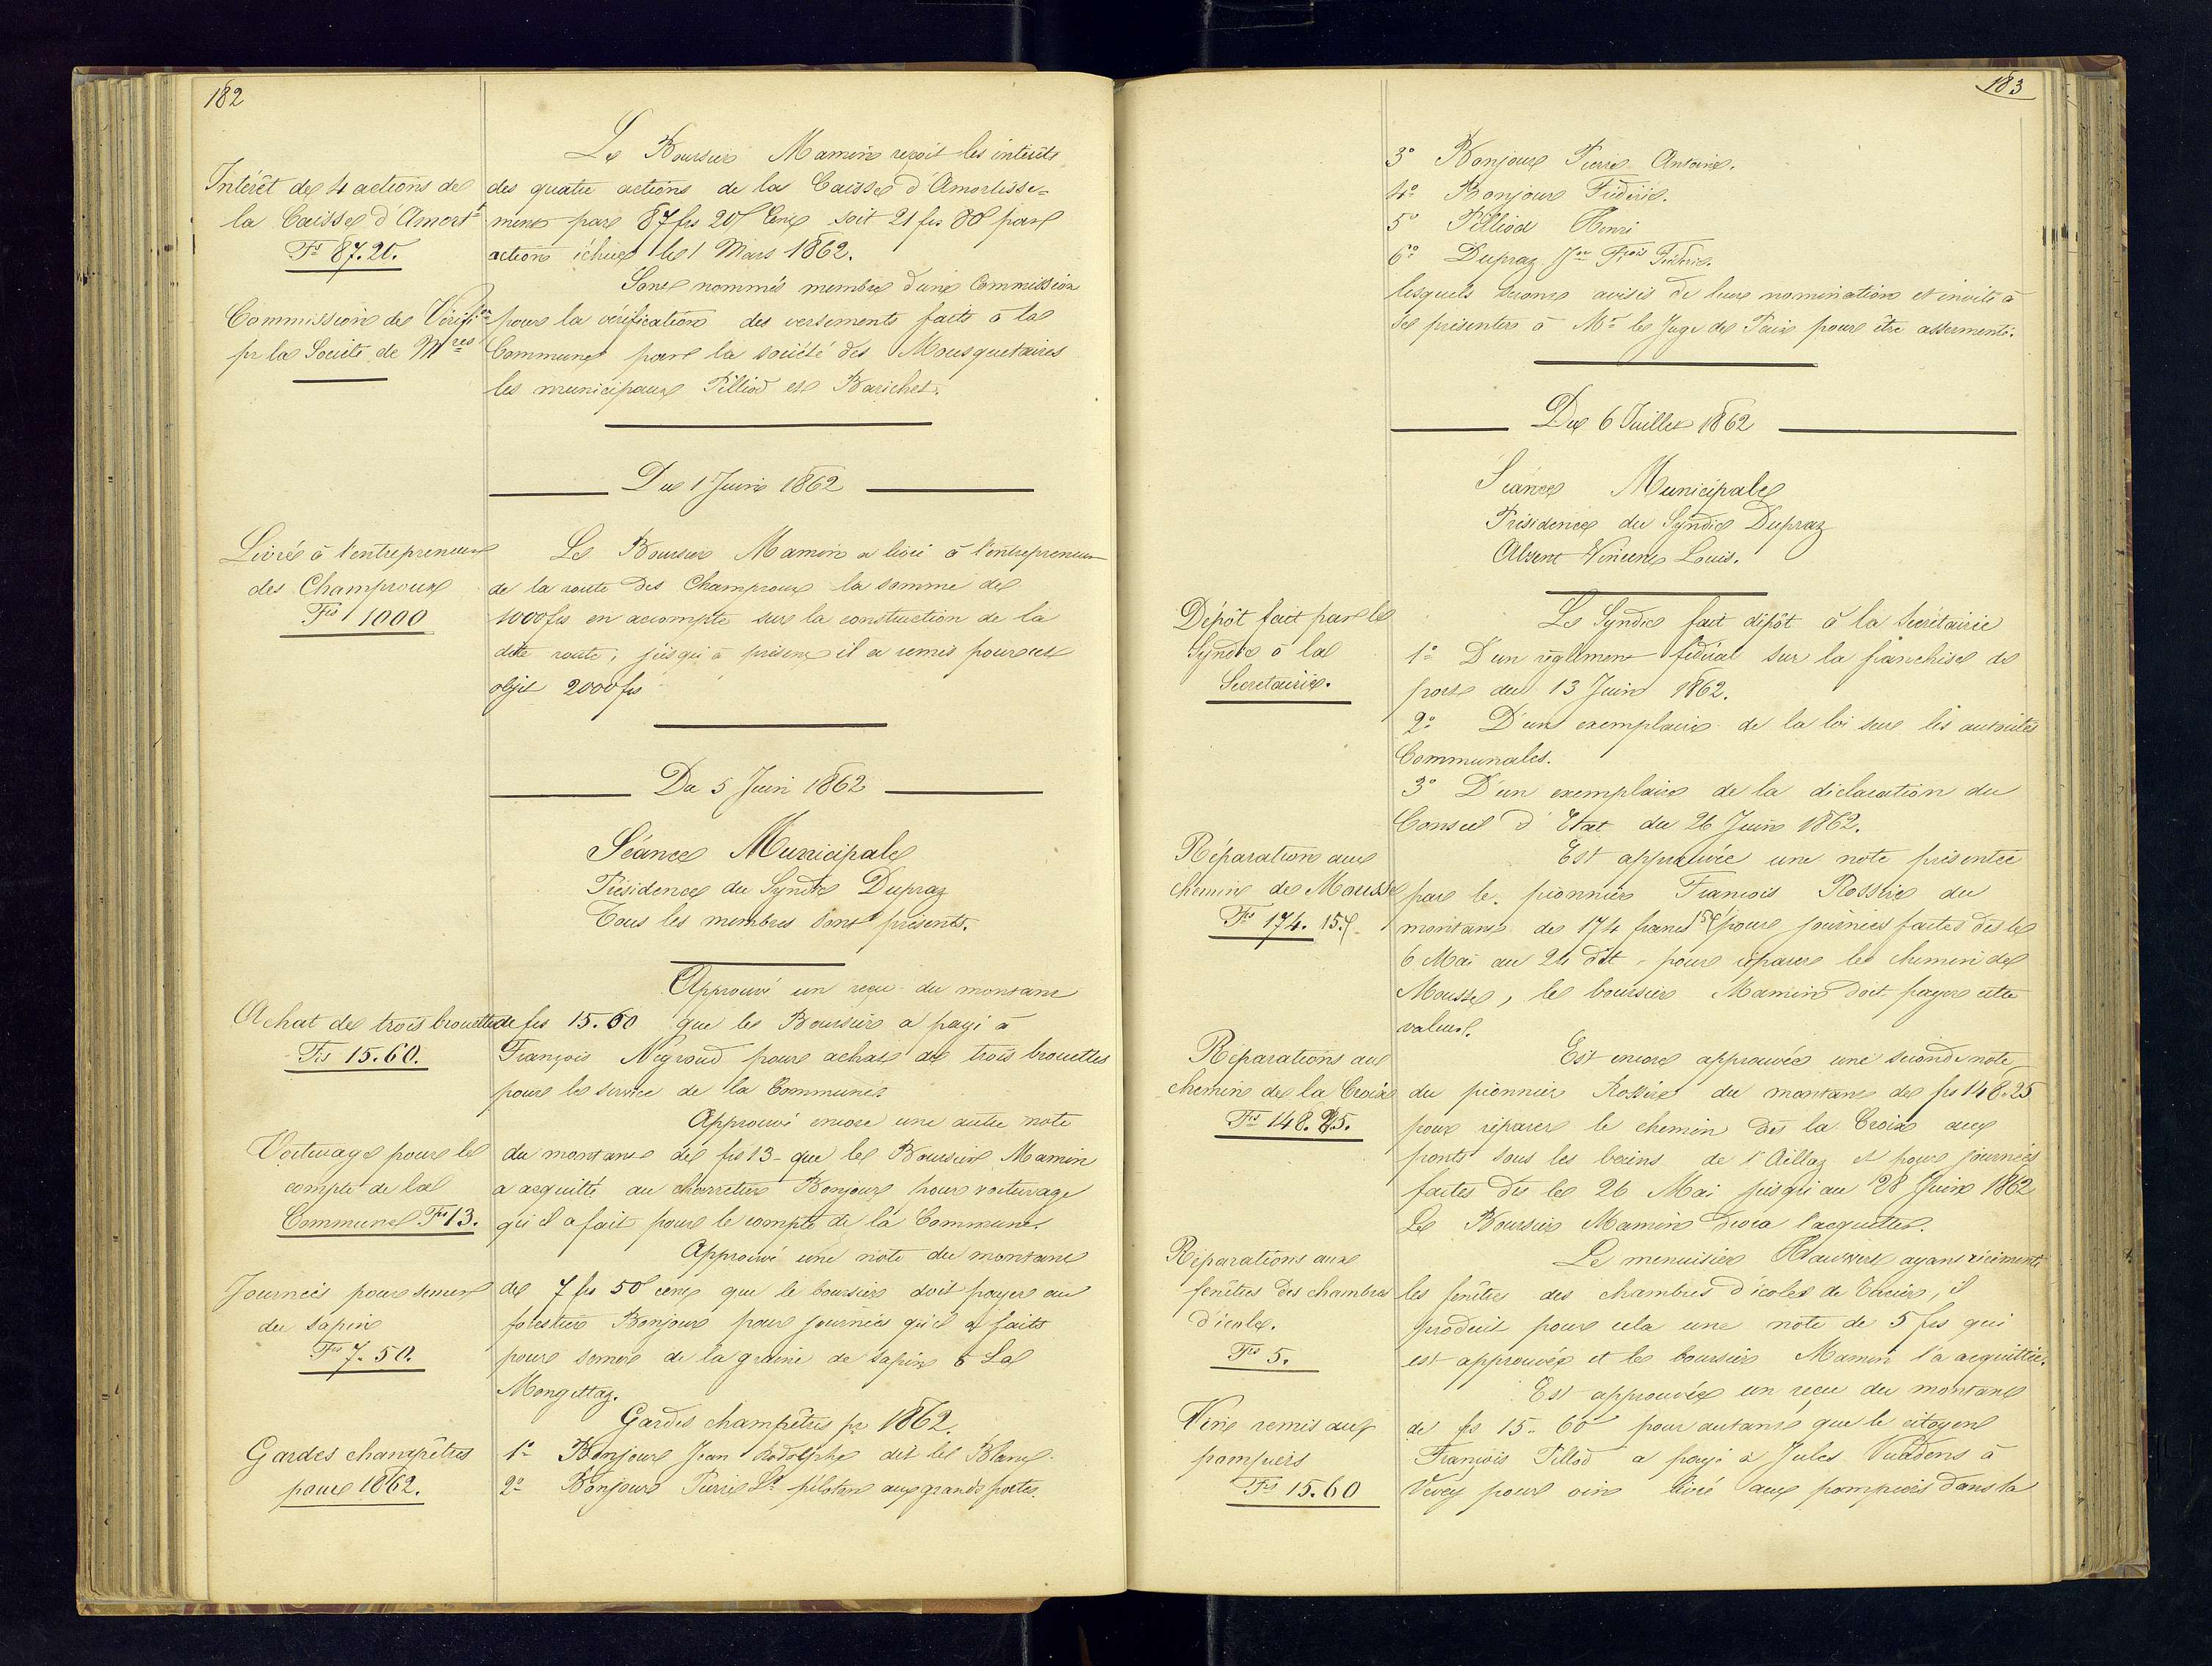 182
Le Boursier Mamin reçoit les intérêts
Intérêt des 4 actions de
la Caisse d'Amortt
Frs 87.20.
des quatre actions de la Caisse d'Amortisse=
ment par 87 frs 20 Cent soit 21 frs 80 par
action échue le 1 Mars 1862.
Sont nommés membre d'une Commission
Commission de Vérifion
pr la Société de Mres
pour la vérification des versements faits à la
Commune par la société des Mousquetaires
les municipaux Pilliod et Barichet.
Du 1 Juin 1862
Livré à l'entrepreneur
des Champroux
Frs 1000
Le Boursier Mamin a livré à l'entrepreneur
de la route des Champroux la somme de
1000 frs en accompte sur la construction de la
dite route; jusqu'à présent il a remis pour cet
objet 2000 frs
Du 5 Juin 1862
Séance Municipale
Présidence du Syndic Dupraz
Tous les membres sont présents.
Approuvé un reçu du montant
Achat de trois brouettes
Frs 15.60.
de frs 15.60 que le Boursier a payé à
François Neyroud pour achat de trois brouettes
pour le service de la Commune
Approuvé encore une autre note
Voiturage pour le
compte de la
Commune Frs 13.
du montant de frs 13 - que le Boursier Mamin
a acquitté au charretier Bonjour pour voiturage
qu'il a fait pour le compte de la Commune.
Approuvé une note du montant
Journées pour semer
du sapin
Frs 7.50.
de 7 frs 50 cent que le boursier doit payer au
forestier Bonjour pour journées qu'il a faits
pour semer de la graine de sapin à La
Mongettaz.
Gardes champêtres pr 1862.
Gardes champêtres
pour 1862.
1° Bonjour Jean Rodolphe dit le Blanc.
2° Bonjour Pierre Ls piloton aux grands portes.
183
3° Bonjour Pierre Antoine.
4° Bonjour Fréderic.
5° Pilliod Henri
6° Dupraz Jn Frois Fréderic.
lesquels seront avisés de leur nomination et invité à
se présenter à Mr le Juge de Paix pour être assermenté.
Du 6 Juillet 1862
Séance Municipale
Présidence du Syndic Dupraz
Absent Vincent Louis.
Dépôt fait par le
Syndic à la
Secretairie.
Le Syndic fait dépôt à la Secrétairie
1° D'un règlement fédéral sur la franchise de
port du 13 Juin 1862.
2° D'un exemplaire de la loi sur les autorités
Communales.
3° D'un exemplaire de la déclaration du
Conseil d'Etat du 26 Juin 1862.
Est approuvée une note présentée
Réparation au
chemin de Mousse
Frs 174.15.
par le pionnier François Rossire du
montant de 174 francs 15 pour journées faites dès le
6 Mai au 24 dit - pour réparer le chemin de
Mousse, le boursier Mamin doit payer cette
valeur.
Est encore approuvée une seconde note
Réparations au
chemin de la Croix
Frs 148.25.
du pionnier Rossire du montant de frs 148.25
pour réparer le chemin dès la Croix aux
ponts sous les bains de l'Aillaz et pour journées
faites dès le 26 Mai jusqu'au 28 Juin 1862
Le Boursier Mamin devra l'acquitter.
Réparations aux
fenêtres des chambres
d'école.
Frs 5.
Le menuisier Hauwert ayant
les fenêtres des chambres d'écoles de il
produit pour cela une note de 5 frs qui
est approuvée et le boursier Mamin l'a acquittée.
Est approuvée un reçu du montant
Vin remis aux
pompiers
Frs 15.60
de frs 15.60 pour autant que le citoyen
François Pilliod a payé à Jules Vuadens à
Vevey pour vin livré aux pompiers dans la